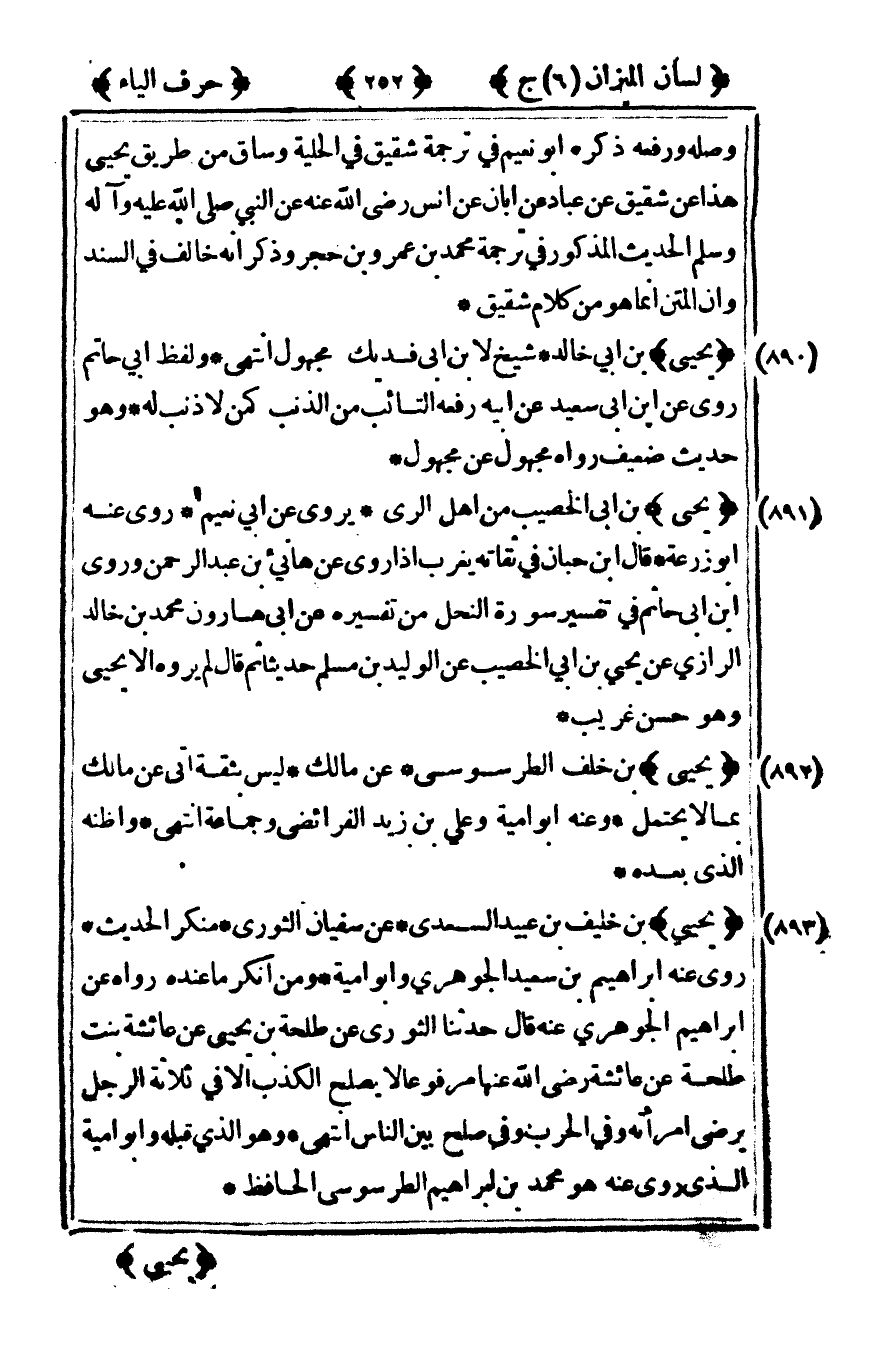 ﴿ لسان الميزان (٦) ج ﴾ ﴿ ٢٥٢ ﴾ ﴿ حرف الياء ﴾
وصله ورفعه ذكره ابو نعيم في ترجمة شقيق في الحلية وساق من طريق يحيى
هذا عن شقيق عن عباد عن ابان عن انس رضى الله عنه عن النبي صلى الله عليه وآله
وسلم الحديث المذكور في ترجمة محمد بن عمرو بن حجر وذكر انه خالف في السند
وان المتن انما هو من كلام شقيق *
(٨٩٠) ﴿ يحيى ﴾ بن ابي خالد * شيخ لا بن ابى فديك مجهول انتهى * ولفظ ابي حاتم
روى عن ابن ابى سعيد عن ابيه رفعه التائب من الذنب كمن لا ذنب له * وهو
حديث ضعيف رواه مجهول عن مجهول *
(٨٩١) ﴿ يحيى ﴾ بن ابى الخصيب من اهل الرى * يروى عن ابي نعيم * روى عنه
ابو زرعة * قال ابن حبان في ثقاته يغرب اذا روى عن هانئ بن عبد الرحمن وروى
ابن ابى حاتم في تفسير سورة النحل من تفسيره عن ابى هارون محمد بن خالد
الرازي عن يحيي بن ابي الخصيب عن الوليد بن مسلم حديثا ثم قال لم يروه الا يحيى
وهو حسن غريب *
(٨٩٢) ﴿ يحيى ﴾ بن خلف الطرسوسى * عن مالك * ليس بثقة اتى عن مالك
بما لا يحتمل * وعنه ابو امية وعلي بن زيد الفرائضى وجماعة انتهى * واظنه
الذى بعده *
(٨٩٣) ﴿ يحيي ﴾ بن خليف بن عبيد السعدى * عن سفيان الثورى * منكر الحديث *
روى عنه ابراهيم بن سعيد الجوهري وابو امية * ومن انكر ما عنده رواه عن
ابراهيم الجوهري عنه قال حدثنا الثورى عن طلحة بن يحيى عن عائشة بنت
طلحة عن عائشة رضى الله عنها مرفوعا لا يصلح الكذب الا في ثلاثة الرجل
يرضى امرأته وفي الحرب وفى صلح بين الناس انتهى * وهو الذي قبله وابو امية
الذى روى عنه هو محمد بن ابراهيم الطرسوسى الحافظ *
﴿ يحيي ﴾